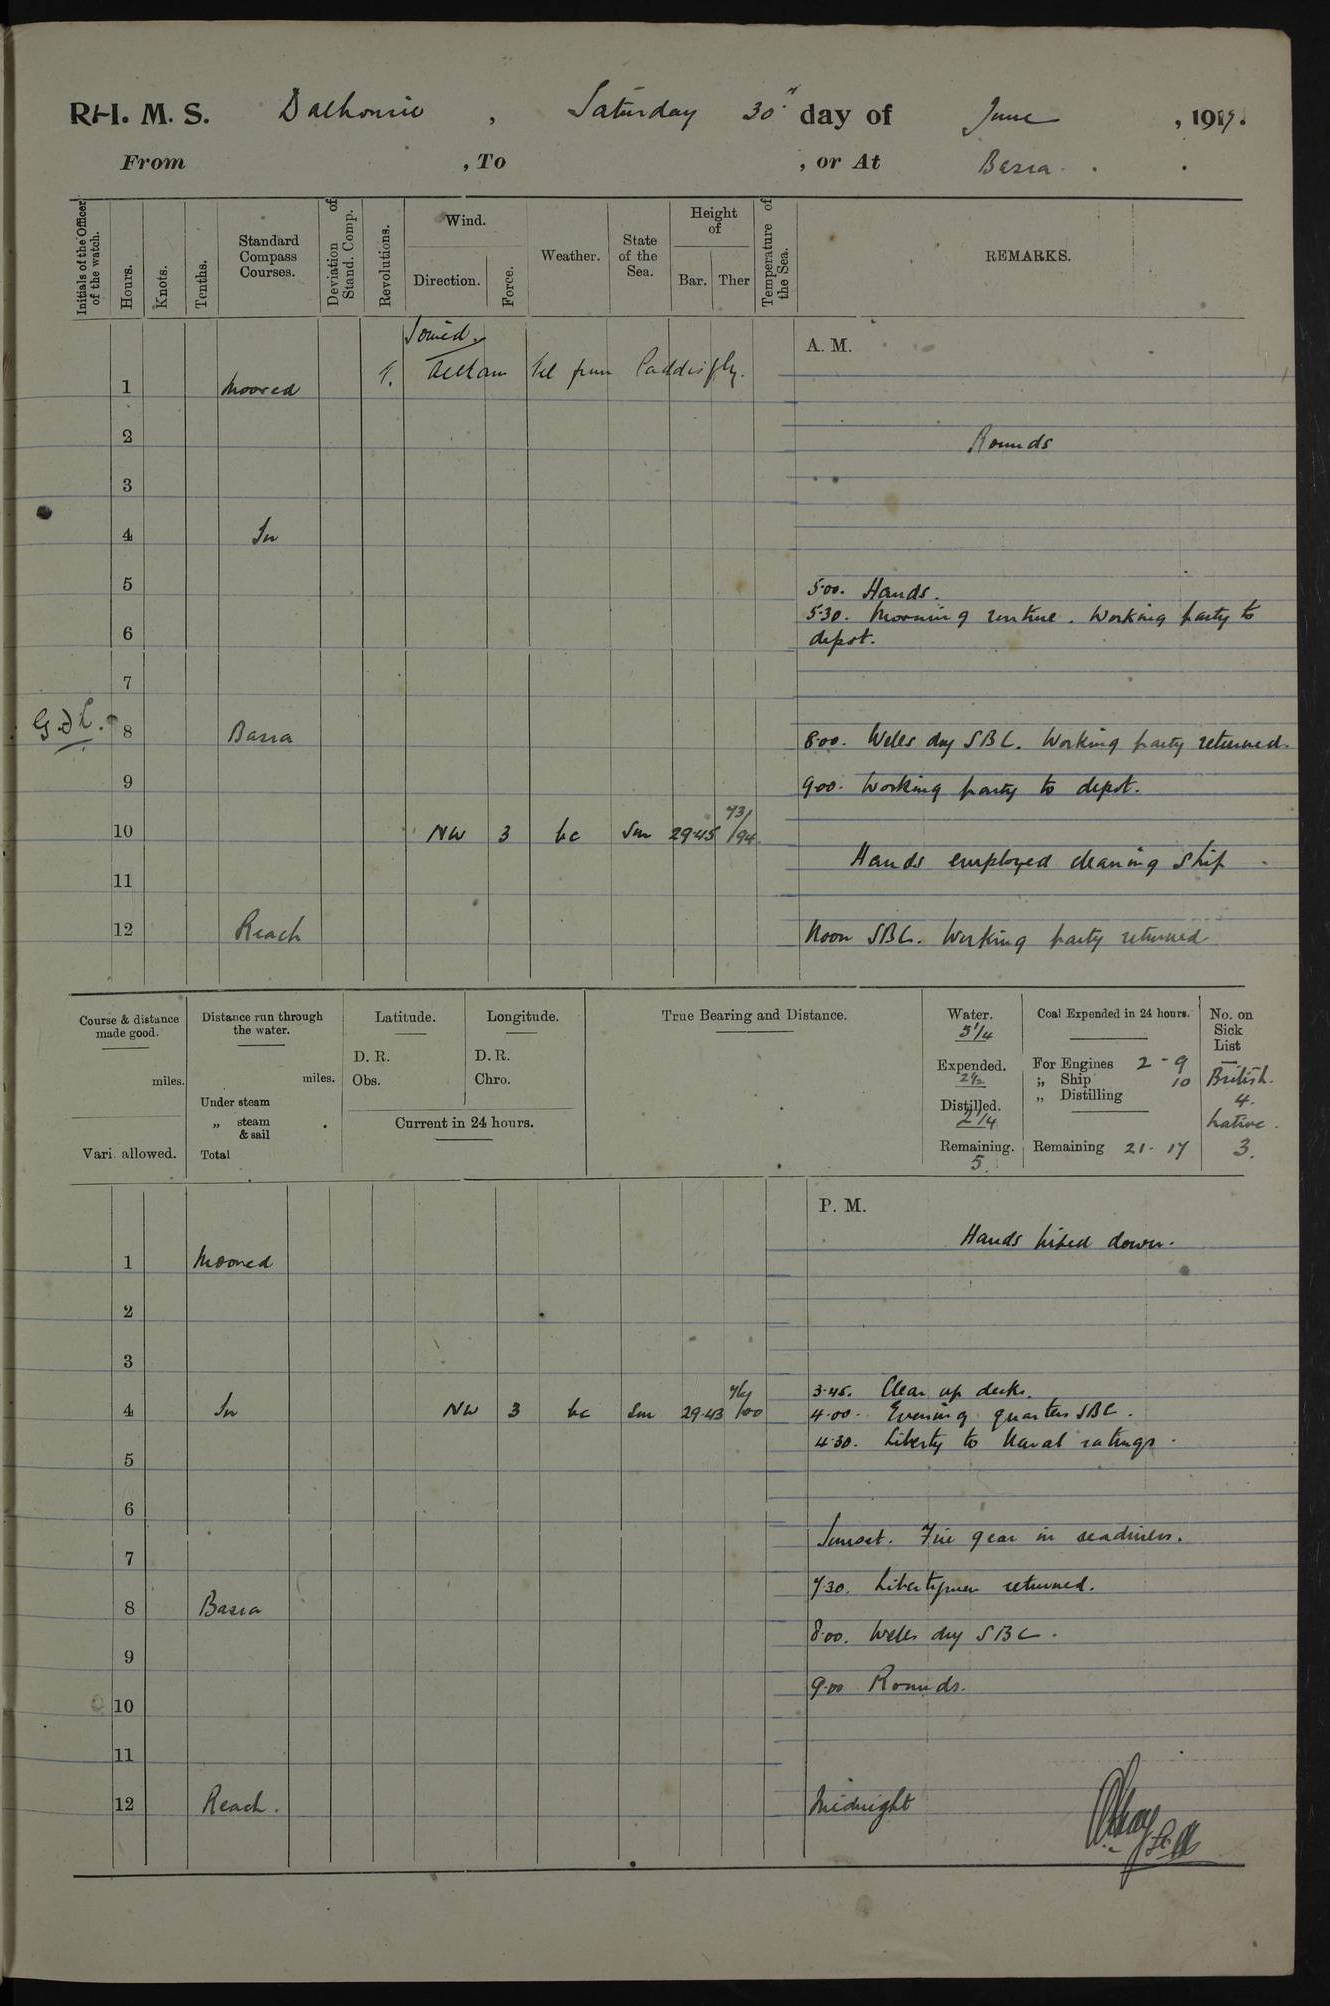 R.I. M. S. Dalhousie, Saturday 30th day of June, 1917.
From , To , or At Basra.
Initials of the Officer of the watch.
Hours.
Knots.
Tenths.
Standard Compass Courses.
Deviation of Stand. Comp.
Revolutions.
Wind.
Direction.
Force.
Weather.
State of the Sea.
Height of
Bar.
Ther
Temperature of the Sea.
REMARKS.
Joined.
A. M.
1 Moored
2 Rounds
3
4 In
5 5.00. Hands.
5.30. Morning routine. Working party to
6 depot.
7
8 Basra 8.00. Wells dry SBC. Working party returned.
9 9.00. Working party to depot.
10 NW 3 bc Sm 29.45 73/94
Hands employed cleaning ship
11
12 Reach Noon SBC. Working party returned
Course & distance made good.
miles.
Vari. allowed.
Distance run through the water.
miles.
Under steam
„ steam & sail
Total
Latitude.
D. R.
Obs.
Longitude.
D. R.
Chro.
Current in 24 hours.
True Bearing and Distance.
Water.
5 1/4
Expended.
2 1/2
Distilled.
2 1/4
Remaining.
5
Coal Expended in 24 hours.
For Engines 2 - 9
„ Ship 10
„ Distilling
Remaining 21 - 17
No. on Sick List
British.
4.
Native.
3.
P. M.
Hands piped down.
1 Moored
2
3
3.45. Clear up decks.
4 In NW 3 bc Sm 29.43 76/100 4.00. Evening quarters SBC.
4.30. Liberty to Naval ratings.
5
6
Sunset. Fire gear in readiness.
7
7.30. Libertymen returned.
8 Basra
8.00. Wells dry SBC.
9
9.00 Rounds.
10
11
12 Reach. Midnight